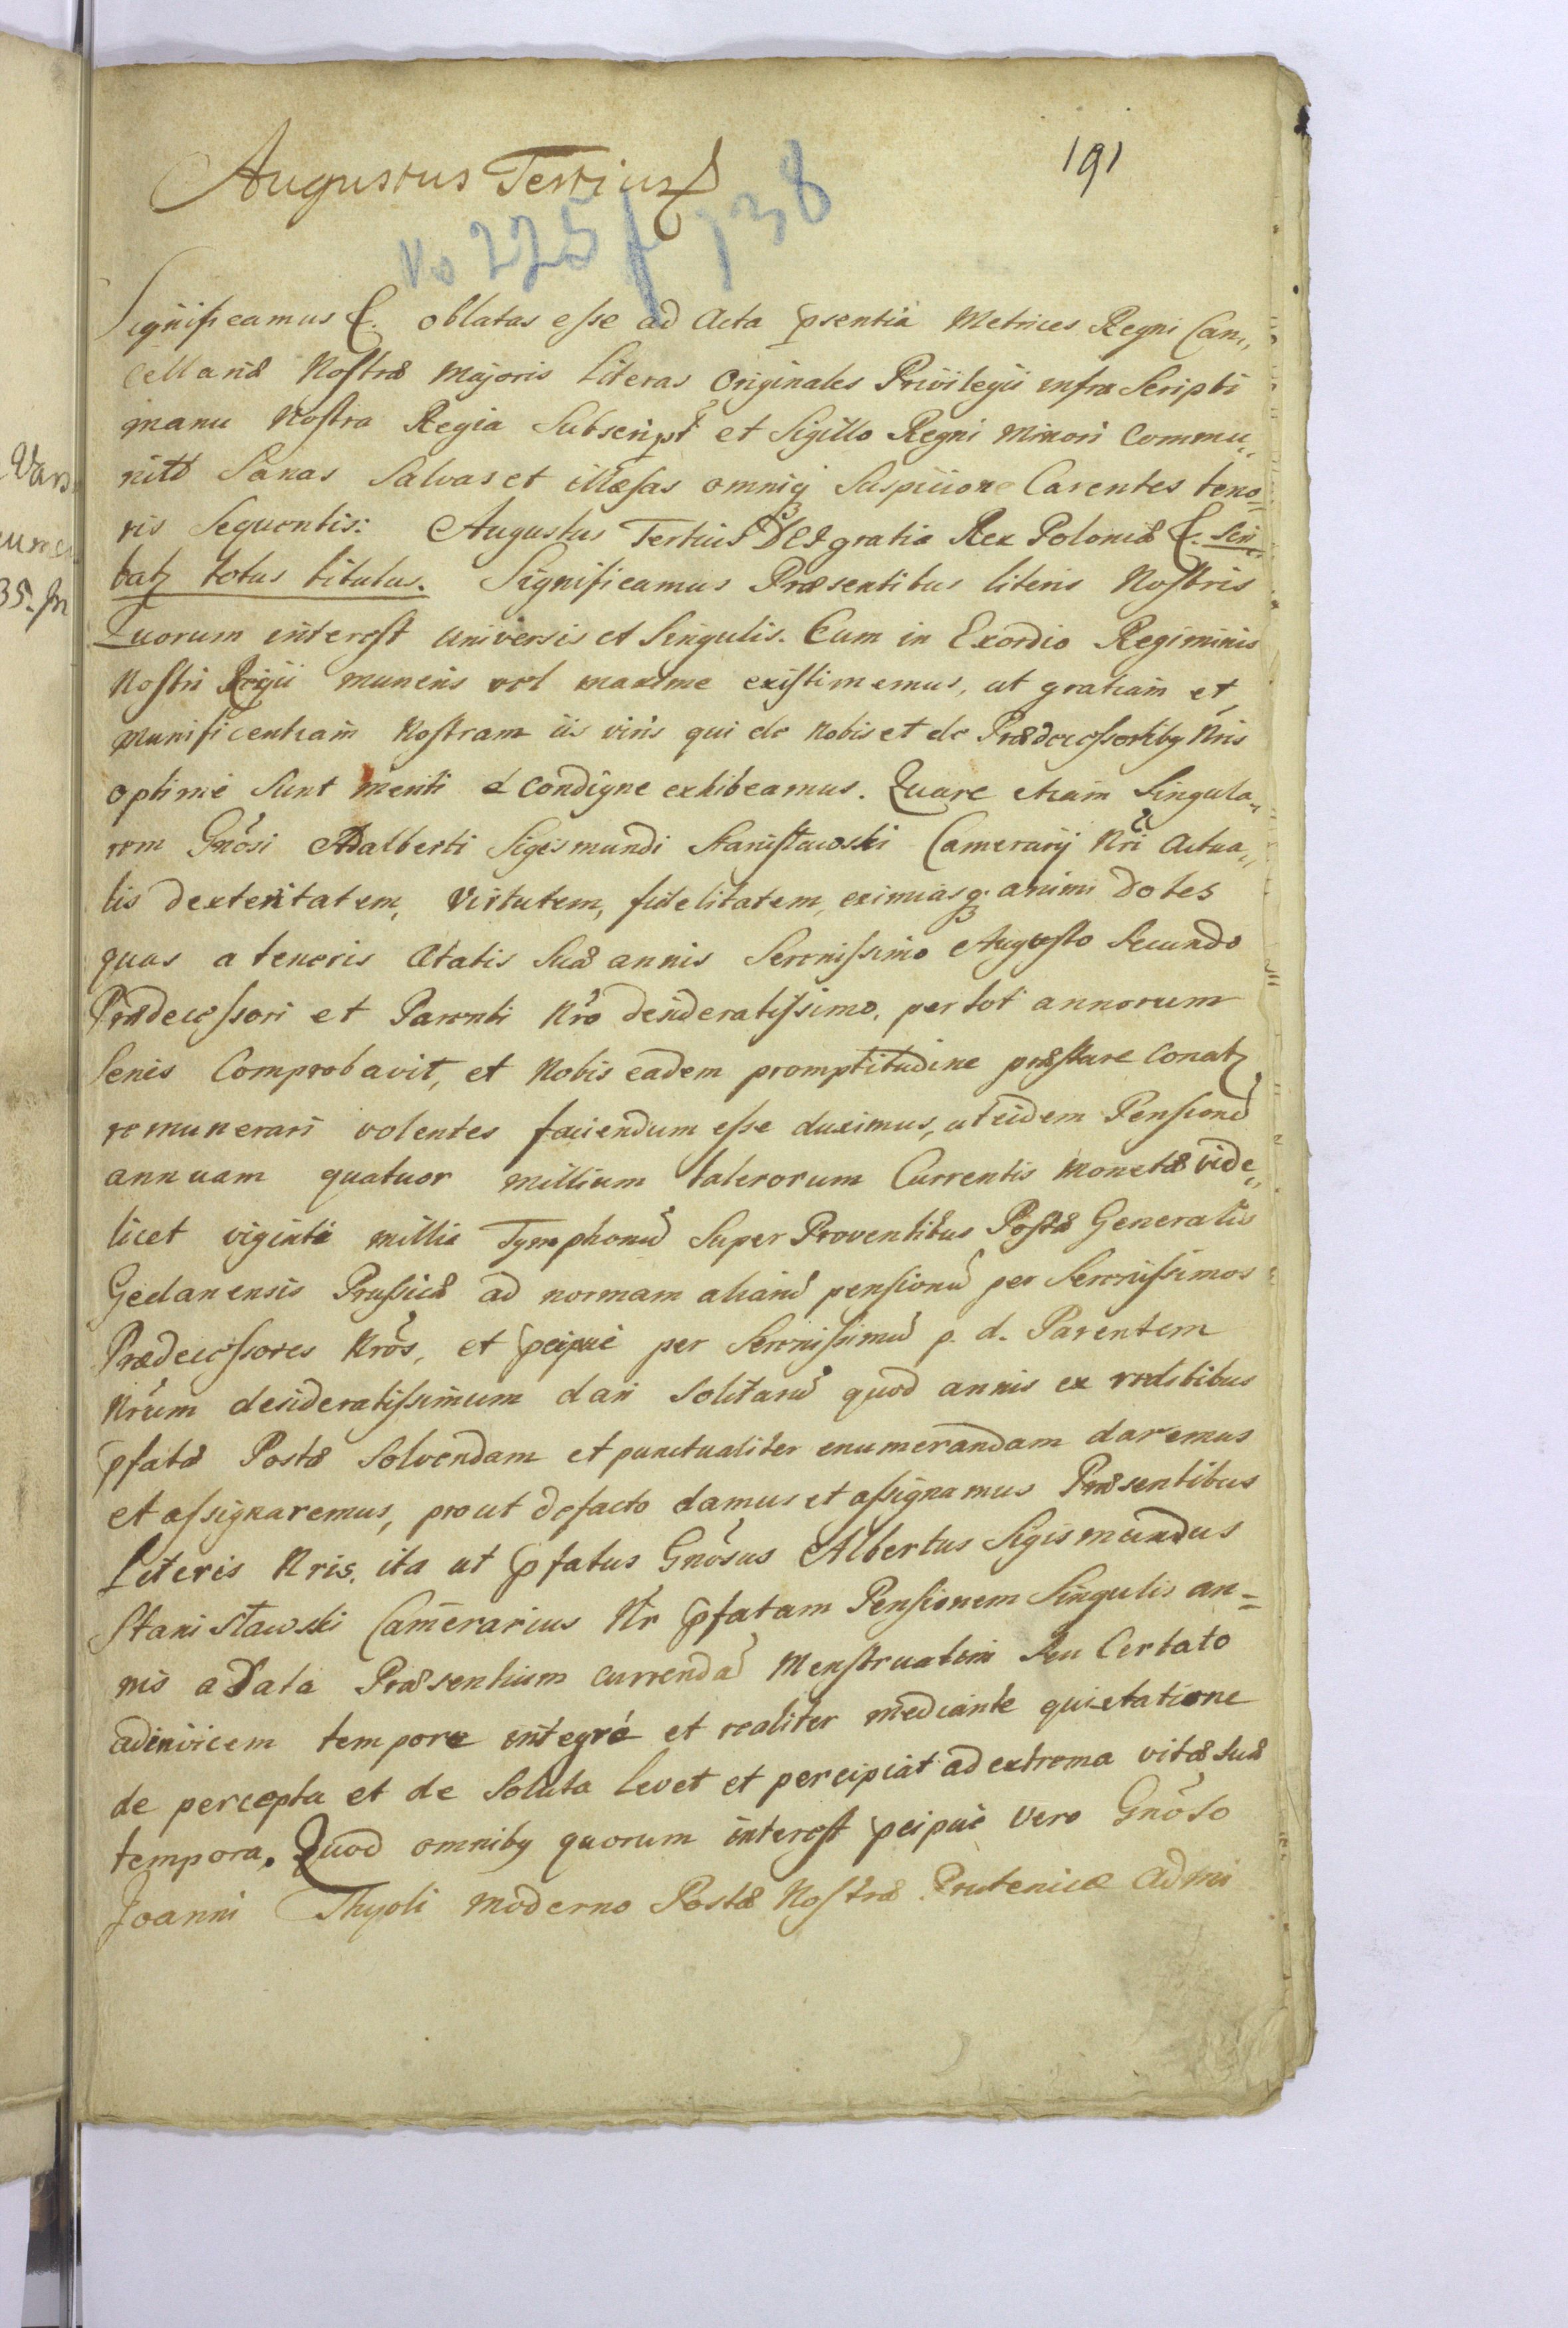 191
Augustus Tertius
No 225 f 738
Significamus &. oblatas esse ad Acta psentia Metrices Regni Can„
cellariæ Nostræ Majoris Literas Originales Privilegii infra Scripti
manu Nostra Regia Subscript et Sigillo Regni Minori Commu„
nitō Sanas Salvas et illæsas omniq; Suspicione Carentes teno=
ris Sequentis: Augustus Tertius DEI gratia Rex Poloniæ &. Scri„
batz totus titulus. Significamus Præsentibus literis Nostris
Quorum interest universis et Singulis. Cum in Exordio Regiminis
Nostri Regii muneris vel maxime existimemus, ut gratiam et
munificentiam Nostram iis viris qui de Nobis et de Prædecessoriby Nris
optime Sunt meriti condigne exhibeamus. Quare etiam Singula„
rem Gnosi Adalberti Sigismundi Stanisławski Camerarij Nri Actua„
lis dexteritatem, Virtutem, fidelitatem, eximiasq; animi dotes
quas a teneris Ætatis Suæ annis Serenissimo Augusto Secundo
Prædecessori et Parenti Nro desideratissimo, per tot annorum
Seriēs Comprobavit, et Nobis eadem promptitudine præstare Conatz
remunerari volentes faciendum esse duximus, ut eidem Pensionē
annuam quatuor millium talerorum Currentis Monetæ vide„
licet viginti millia Tymphonū Super Proventibus Postæ Generalis
Gedanensis Prussiæ ad normam aliarū pensionū per Serenissimos
Prædecessores Nros, et pcipuè per Serenissimū p. d. Parentem
Nrum desideratissimum dari Solitarū quod annis ex reditibus
pfatæ Postæ Solvendam et punctualiter enumerandam daremus
et assignaremus, prout defacto damus et assignamus Præsentibus
Literis Nris, ita ut pfatus Gnosus Albertus Sigismundus
Stanisławski Camerarius Nr pfatam Pensionem Singulis an=
nis a Data Præsentium currendā Menstruatim Seu Certato
adinvicem tempore integrè et realiter mediante quietatione
de percepta et de Soluta levet et percipiat ad extrema vitæ suæ
tempora. Quod omniby quorum interest pcipuè vero Gnoso
Joanni Thyoli moderno Postæ Nostræ Prutenicæ Admi